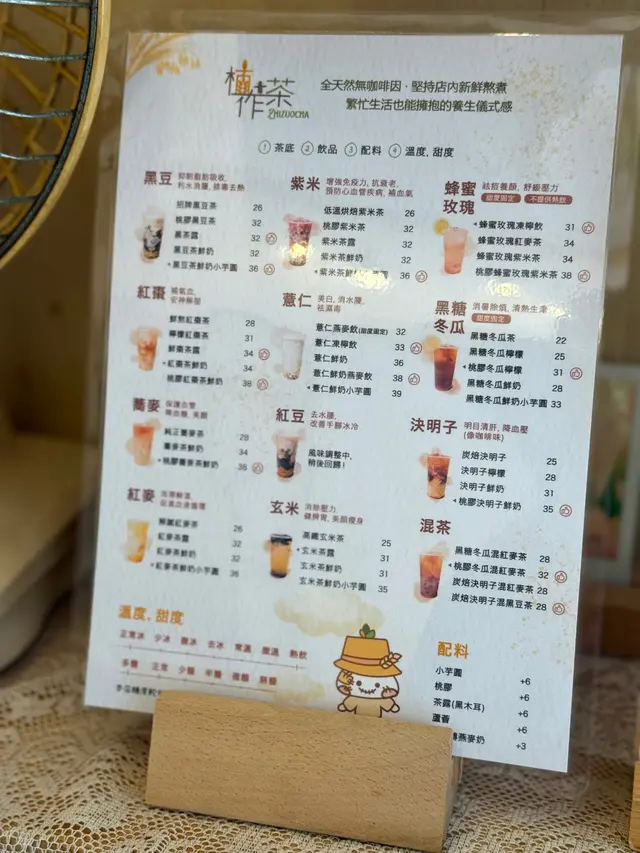 植作茶
ZHIZUOCHA
全天然無咖啡因·堅持店內新鮮熬煮
繁忙生活也能擁抱的養生儀式感
① 茶底 ② 飲品 ③ 配料 ④ 溫度, 甜度
黑豆 抑制脂肪吸收,
利水消腫, 排毒去熱
招牌黑豆茶 26
桃膠黑豆茶 32
黑茶露 32
黑豆茶鮮奶 32
黑豆茶鮮奶小芋圓 36
紅棗 補氣血,
安神解壓
鮮熬紅棗茶 28
檸檬紅棗茶 31
鮮棗茶露 34
紅棗茶鮮奶 34
桃膠紅棗茶鮮奶 38
蕎麥 保護血管
降血糖, 美顏
純正蕎麥茶 28
蕎麥茶鮮奶 34
桃膠蕎麥茶鮮奶 38
紅麥
促進血液循環
紅麥茶露 32
紅麥茶鮮奶 32
紅麥茶鮮奶小芋圓 36
紫米 增強免疫力, 抗衰老,
預防心血管疾病, 補血氣
低溫烘焙紫米茶 26
桃膠紫米茶 32
紫米茶露 32
紫米茶鮮奶 32
紫米茶鮮奶小芋圓 36
薏仁 美白, 消水腫,
祛濕毒
薏仁燕麥飲(甜度固定) 32
薏仁凍檸飲 33
薏仁鮮奶 36
薏仁鮮奶燕麥飲 38
薏仁鮮奶小芋圓 39
紅豆 去水腫,
改善手腳冰冷
風味調整中,
稍後回歸!
玄米 消除壓力,
健脾胃, 美顏瘦身
高纖玄米茶 25
玄米茶露 31
玄米茶鮮奶 31
玄米茶鮮奶小芋圓 35
蜂蜜
玫瑰
祛痘養顏, 舒緩壓力
甜度固定 不提供熱飲
蜂蜜玫瑰凍檸飲 31
蜂蜜玫瑰紅麥茶 34
蜂蜜玫瑰紫米茶 34
桃膠蜂蜜玫瑰紫米茶 38
黑糖
冬瓜
消暑除煩, 清熱生津
甜度固定
黑糖冬瓜茶 22
黑糖冬瓜檸檬 25
桃膠冬瓜檸檬 31
黑糖冬瓜鮮奶 28
黑糖冬瓜鮮奶小芋圓 33
決明子 明目清肝, 降血壓
(像咖啡味)
炭焙決明子 25
決明子檸檬 28
決明子鮮奶 31
桃膠決明子鮮奶 35
混茶
黑糖冬瓜混紅麥茶 28
桃膠冬瓜混紅麥茶 32
炭焙決明子混紅麥茶 28
炭焙決明子混黑豆茶 28
溫度, 甜度
正常冰 少冰 微冰 去冰 常溫 微溫 熱飲
多醣 正常 少醣 半醣 微醣 無醣
配料
小芋圓 +6
桃膠 +6
茶露(黑木耳) +6
蘆薈 +6
燕麥奶 +3